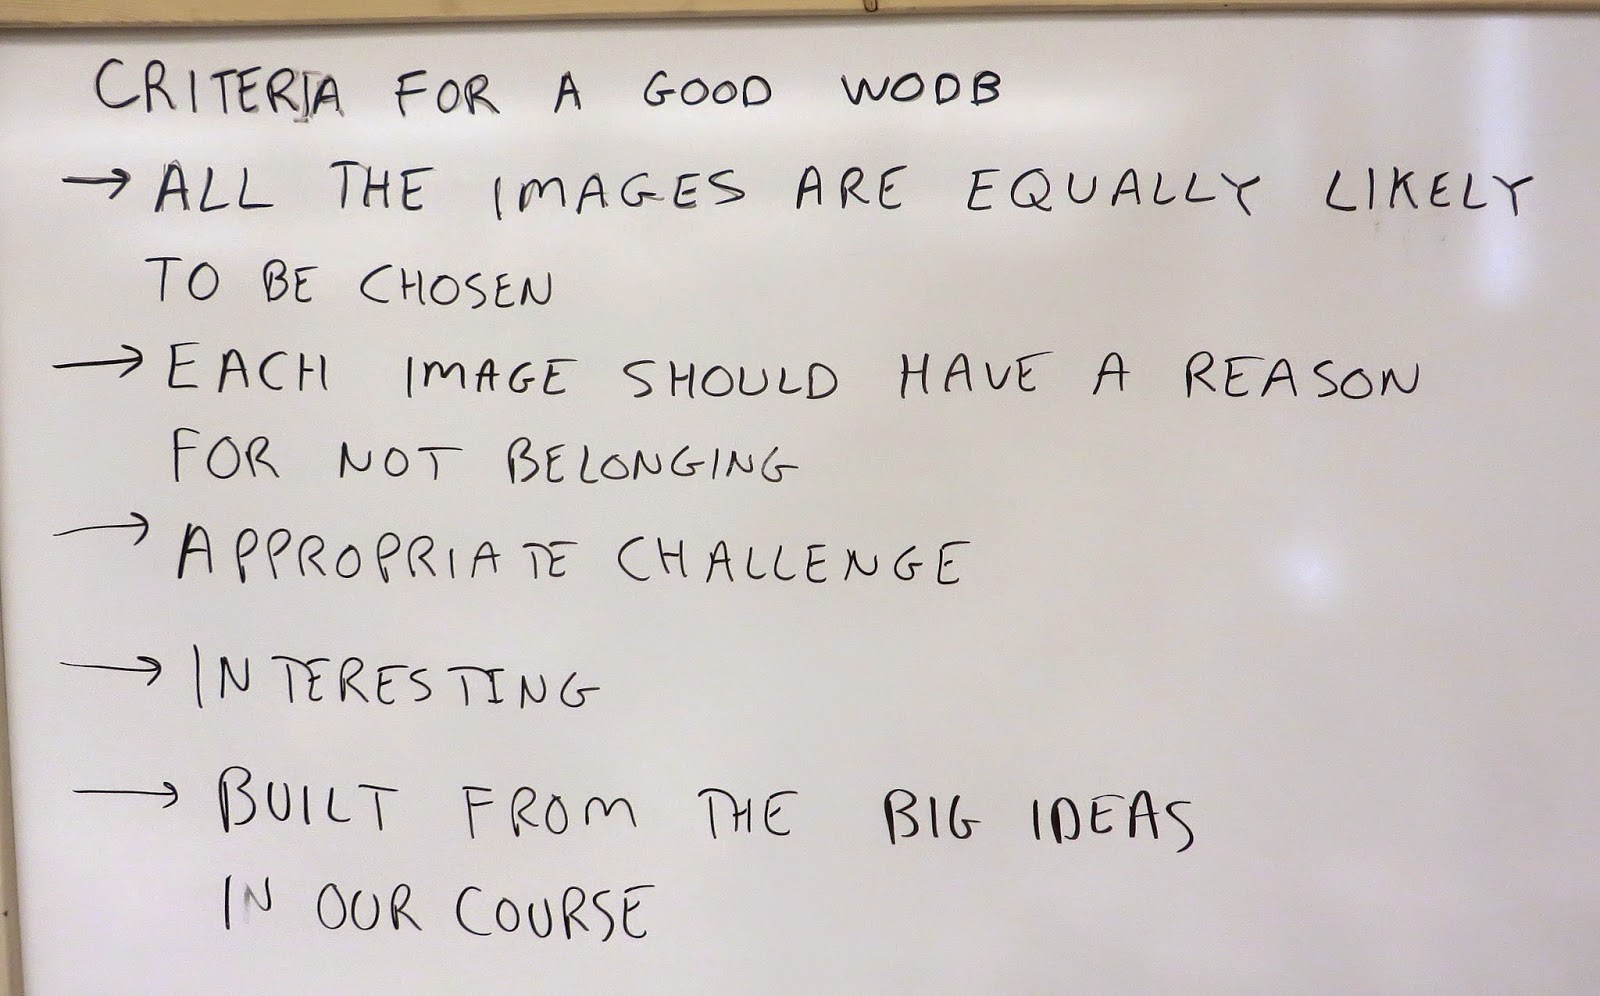 CRITERIA FOR A GOOD WODB
→ ALL THE IMAGES ARE EQUALLY LIKELY
TO BE CHOSEN
→ EACH IMAGE SHOULD HAVE A REASON
FOR NOT BELONGING
→ APPROPRIATE CHALLENGE
→ INTERESTING
→ BUILT FROM THE BIG IDEAS
IN OUR COURSE